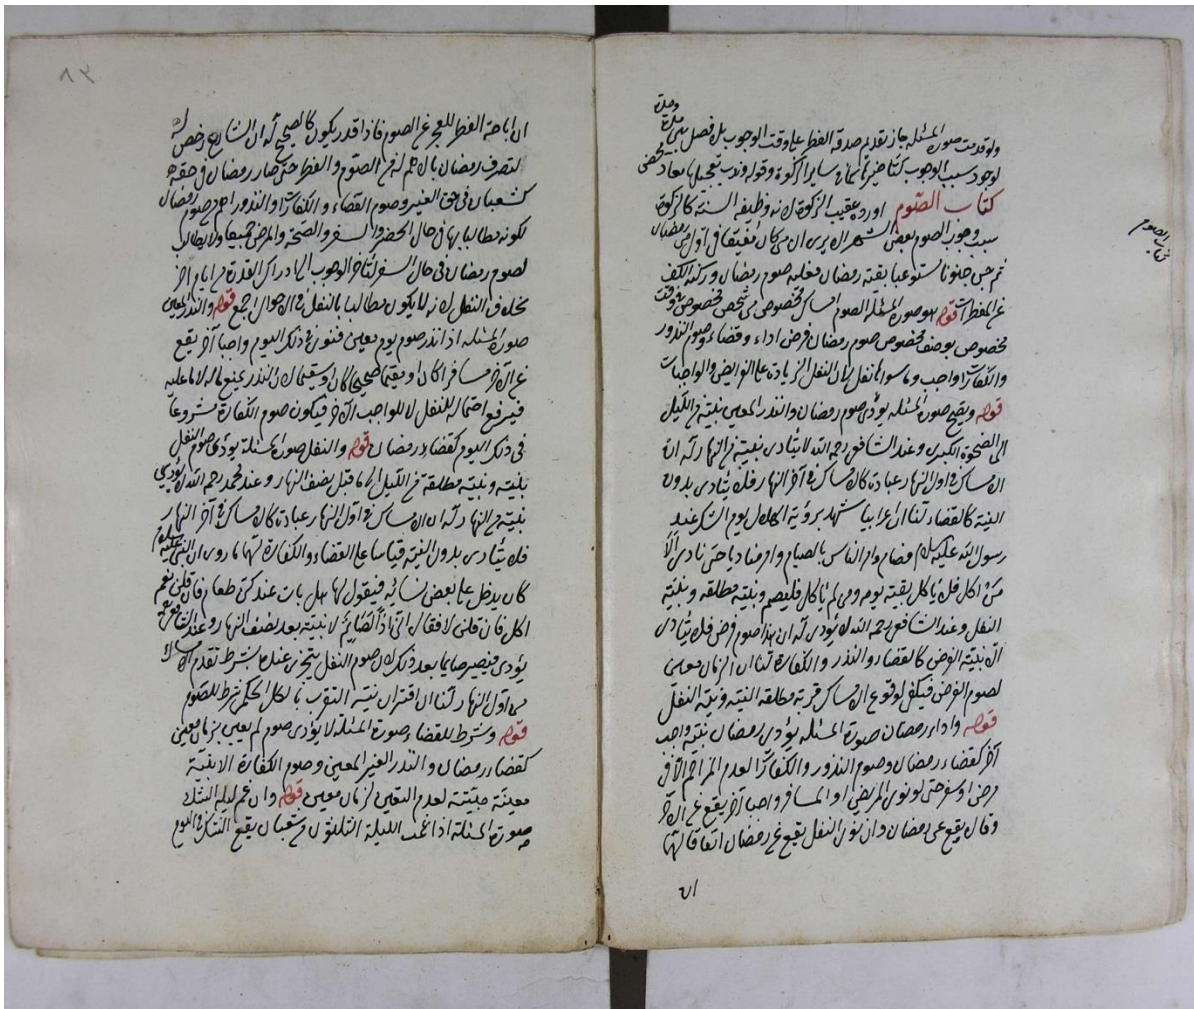 ولو قدمت صورة المسئلة جاز تقديم صدقة الفطر على وقت الوجوب بلا فصل بين مدة ومدة
لوجود سبب الوجوب كتاخيرها كما في ساير الزكوة وقوله وندب تعجيلها
كتاب الصوم اورده عقيب الزكوة لانه وظيفة السنة كالزكوة
سبب وجوب الصوم بعض الشهر الا يرى ان من كان مفيقا في اول رمضان
ثم جن جنونا مستوعبا بقية رمضان فعليه صوم رمضان وركنه الكف
عن المفطرات قوله هو صورة المسئلة الصوم امساك مخصوص من شخص مخصوص في وقت
مخصوص بوصف مخصوص صوم رمضان فرض اداء وقضاء وصوم النذور
والكفارات واجب وما سواها نفل لان النفل الزيادة على الفرايض والواجبات
قوله ويصح صورة المسئلة يؤدى صوم رمضان والنذر المعين بنية من الليل
الى الضحوة الكبرى وعند الشافعي رحمه الله لا يتادى بنية من النهار له ان
الامساك في اول النهار عبادة كالامساك في آخر النهار فلا يتادى بدون
النية كالقضاء لنا ان اعرابيا شهد برؤية الهلال يوم الشك عند
رسول الله عليه السلام فصام وامر الناس بالصيام وامر مناديا حتى نادى الا
من اكل فلا ياكل بقية يومه ومن لم ياكل فليصم وبنية مطلقة وبنية
النفل وعند الشافعي رحمه الله لا يؤدى له ان هذا صوم فرض فلا يتادى
الا بنية الفرض كالقضاء والنذر والكفارة لنا ان الزمان معين
لصوم الفرض فيكفي لوقوع الامساك قربة مطلقة النية ونية النفل
قوله واداء رمضان صورة المسئلة يؤدى رمضان بنية واجب
آخر كقضاء رمضان وصوم النذور والكفارات لعدم المزاحم الا في
مرض او سفر حتى لو نوى المريض او المسافر واجبا آخر يقع عن الآخر
وقالا يقع عن رمضان وان نوى النفل يقع عن رمضان اتفاقا لهما
ان
كتاب الصوم
٨٣
ان اباحة الفطر للعجز عن الصوم فاذا قدر يكون كالصحيح له ان الشارع رخص له
لتصرف رمضان بالاهم له من الصوم والفطر حتى صار رمضان في حقه
كشعبان في حق الغير وصوم القضاء والكفارات والنذور اهم من صوم رمضان
لكونه مطالبا بها في حال الحضر والسفر والصحة والمرض جميعا ولا يطالب
لصوم رمضان في حال السفر لتاخر الوجوب الى ادراك القدرة من ايام اخر
بخلاف النفل لانه لا يكون مطالبا بالنفل في الاحوال اجمع قوله والنذر المعين
صورة المسئلة اذا نذر صوم يوم معين فنوى في ذلك اليوم واجبا آخر يقع
عن الآخر مسافرا كان او مقيما صحيحا كان او سقيما لان النذر يمنع ماله لا ما عليه
فيرفع احتماله للنفل لا للواجب الآخر فيكون صوم الكفارة مشروعا
في ذلك اليوم كقضاء رمضان قوله والنفل صورة المسئلة يؤدى صوم النفل
بنيته وبنية مطلقة من الليل الى ما قبل نصف النهار وعند محمد رحمه الله لا يؤدى
بنية من النهار له ان الامساك في اول النهار عبادة كالامساك في آخر النهار
فلا يتادى بدون النية قياسا على القضاء والكفارة لهما ما روى ان النبي عليه السلام
كان يدخل على بعض نسائه فيقول لها هل بات عندكن طعام فان قلن نعم
اكل فان قلن لا فقال انى اذا لصائم لا بنية بعد نصف النهار وعند الشافعي
يؤدى فيصير صايما بعد ذلك لان صوم النفل يتجزى عنده بشرط تقدم الامساك
من اول النهار لنا ان اقتران نية التقرب بالكل الحكم شرط للصوم
قوله وشرط للقضاء صورة المسئلة لا يؤدى صوم لم يعين بزمان معين
كقضاء رمضان والنذر الغير المعين وصوم الكفارة الا بنية
معينة مبيتة لعدم التعين لزمان معين قوله وان غم ليلة الثلثين
صورة المسئلة اذا غمت الليلة الثلثون من شعبان يقع الشك في اليوم